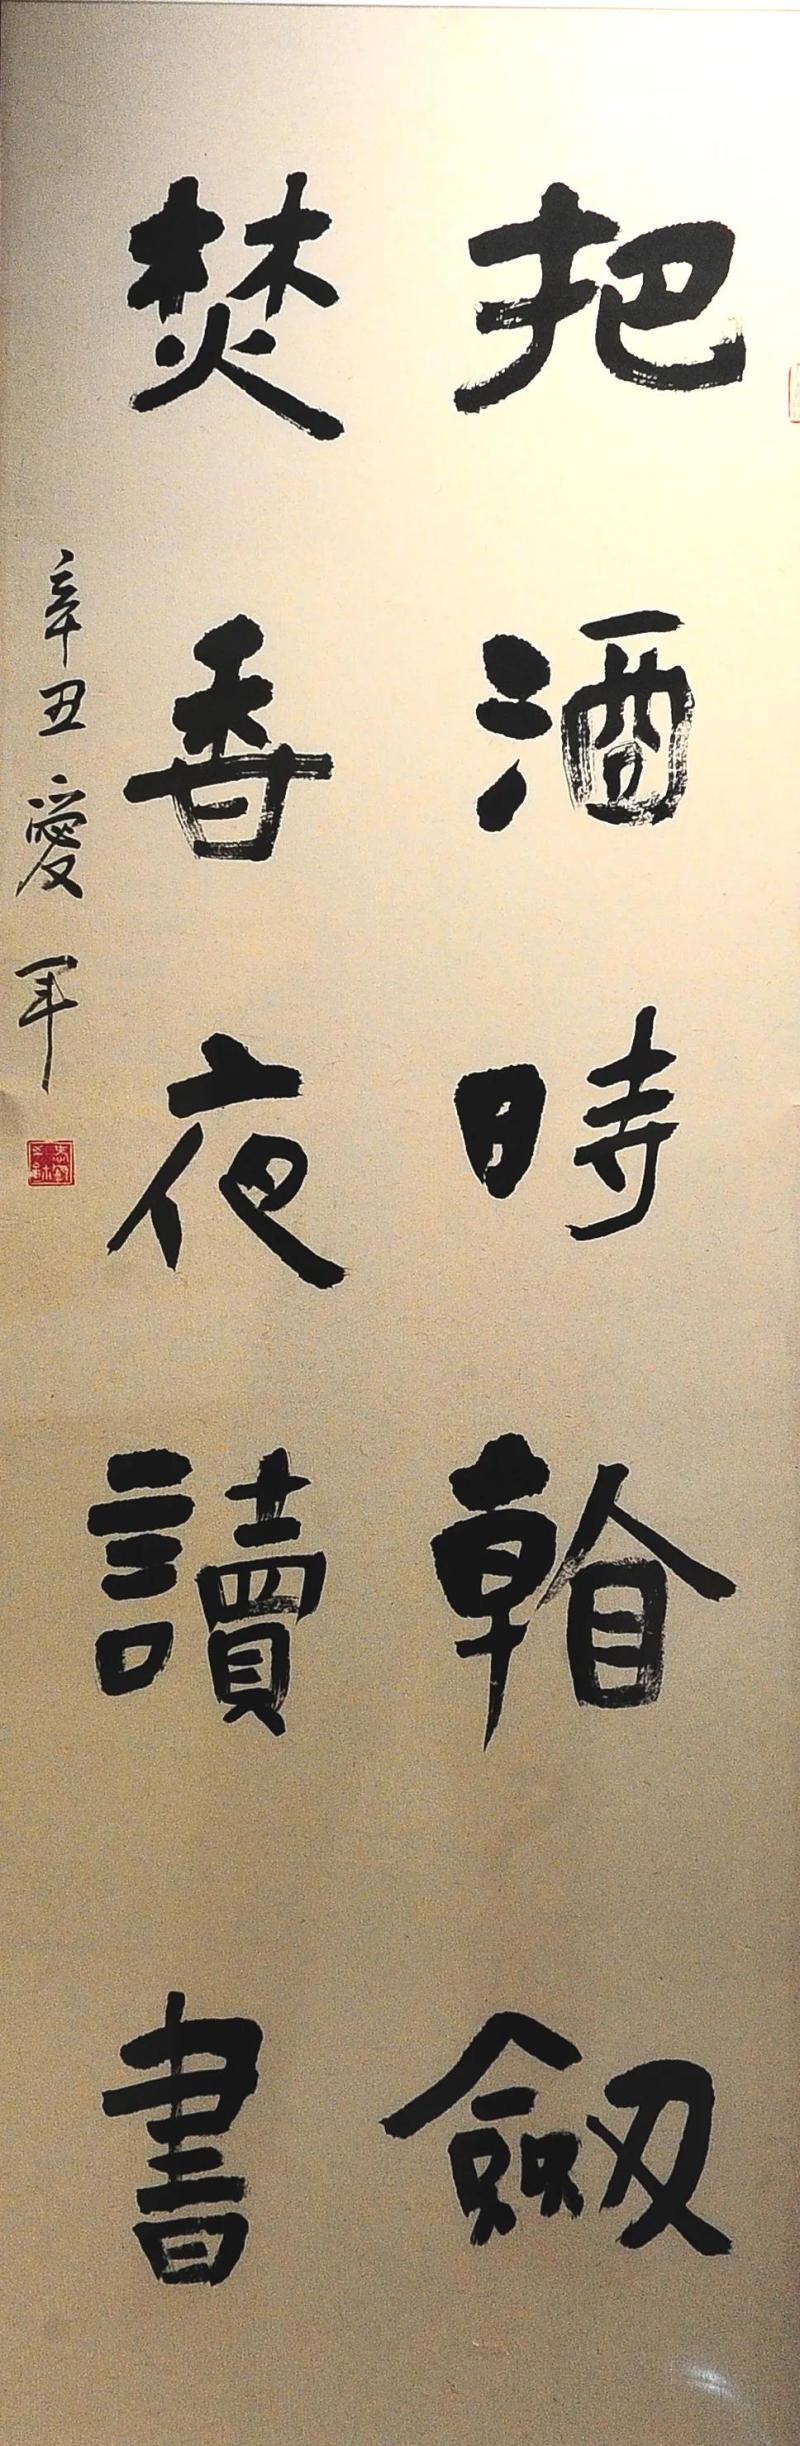 把酒時看劒
焚香夜讀書
辛丑愛軍